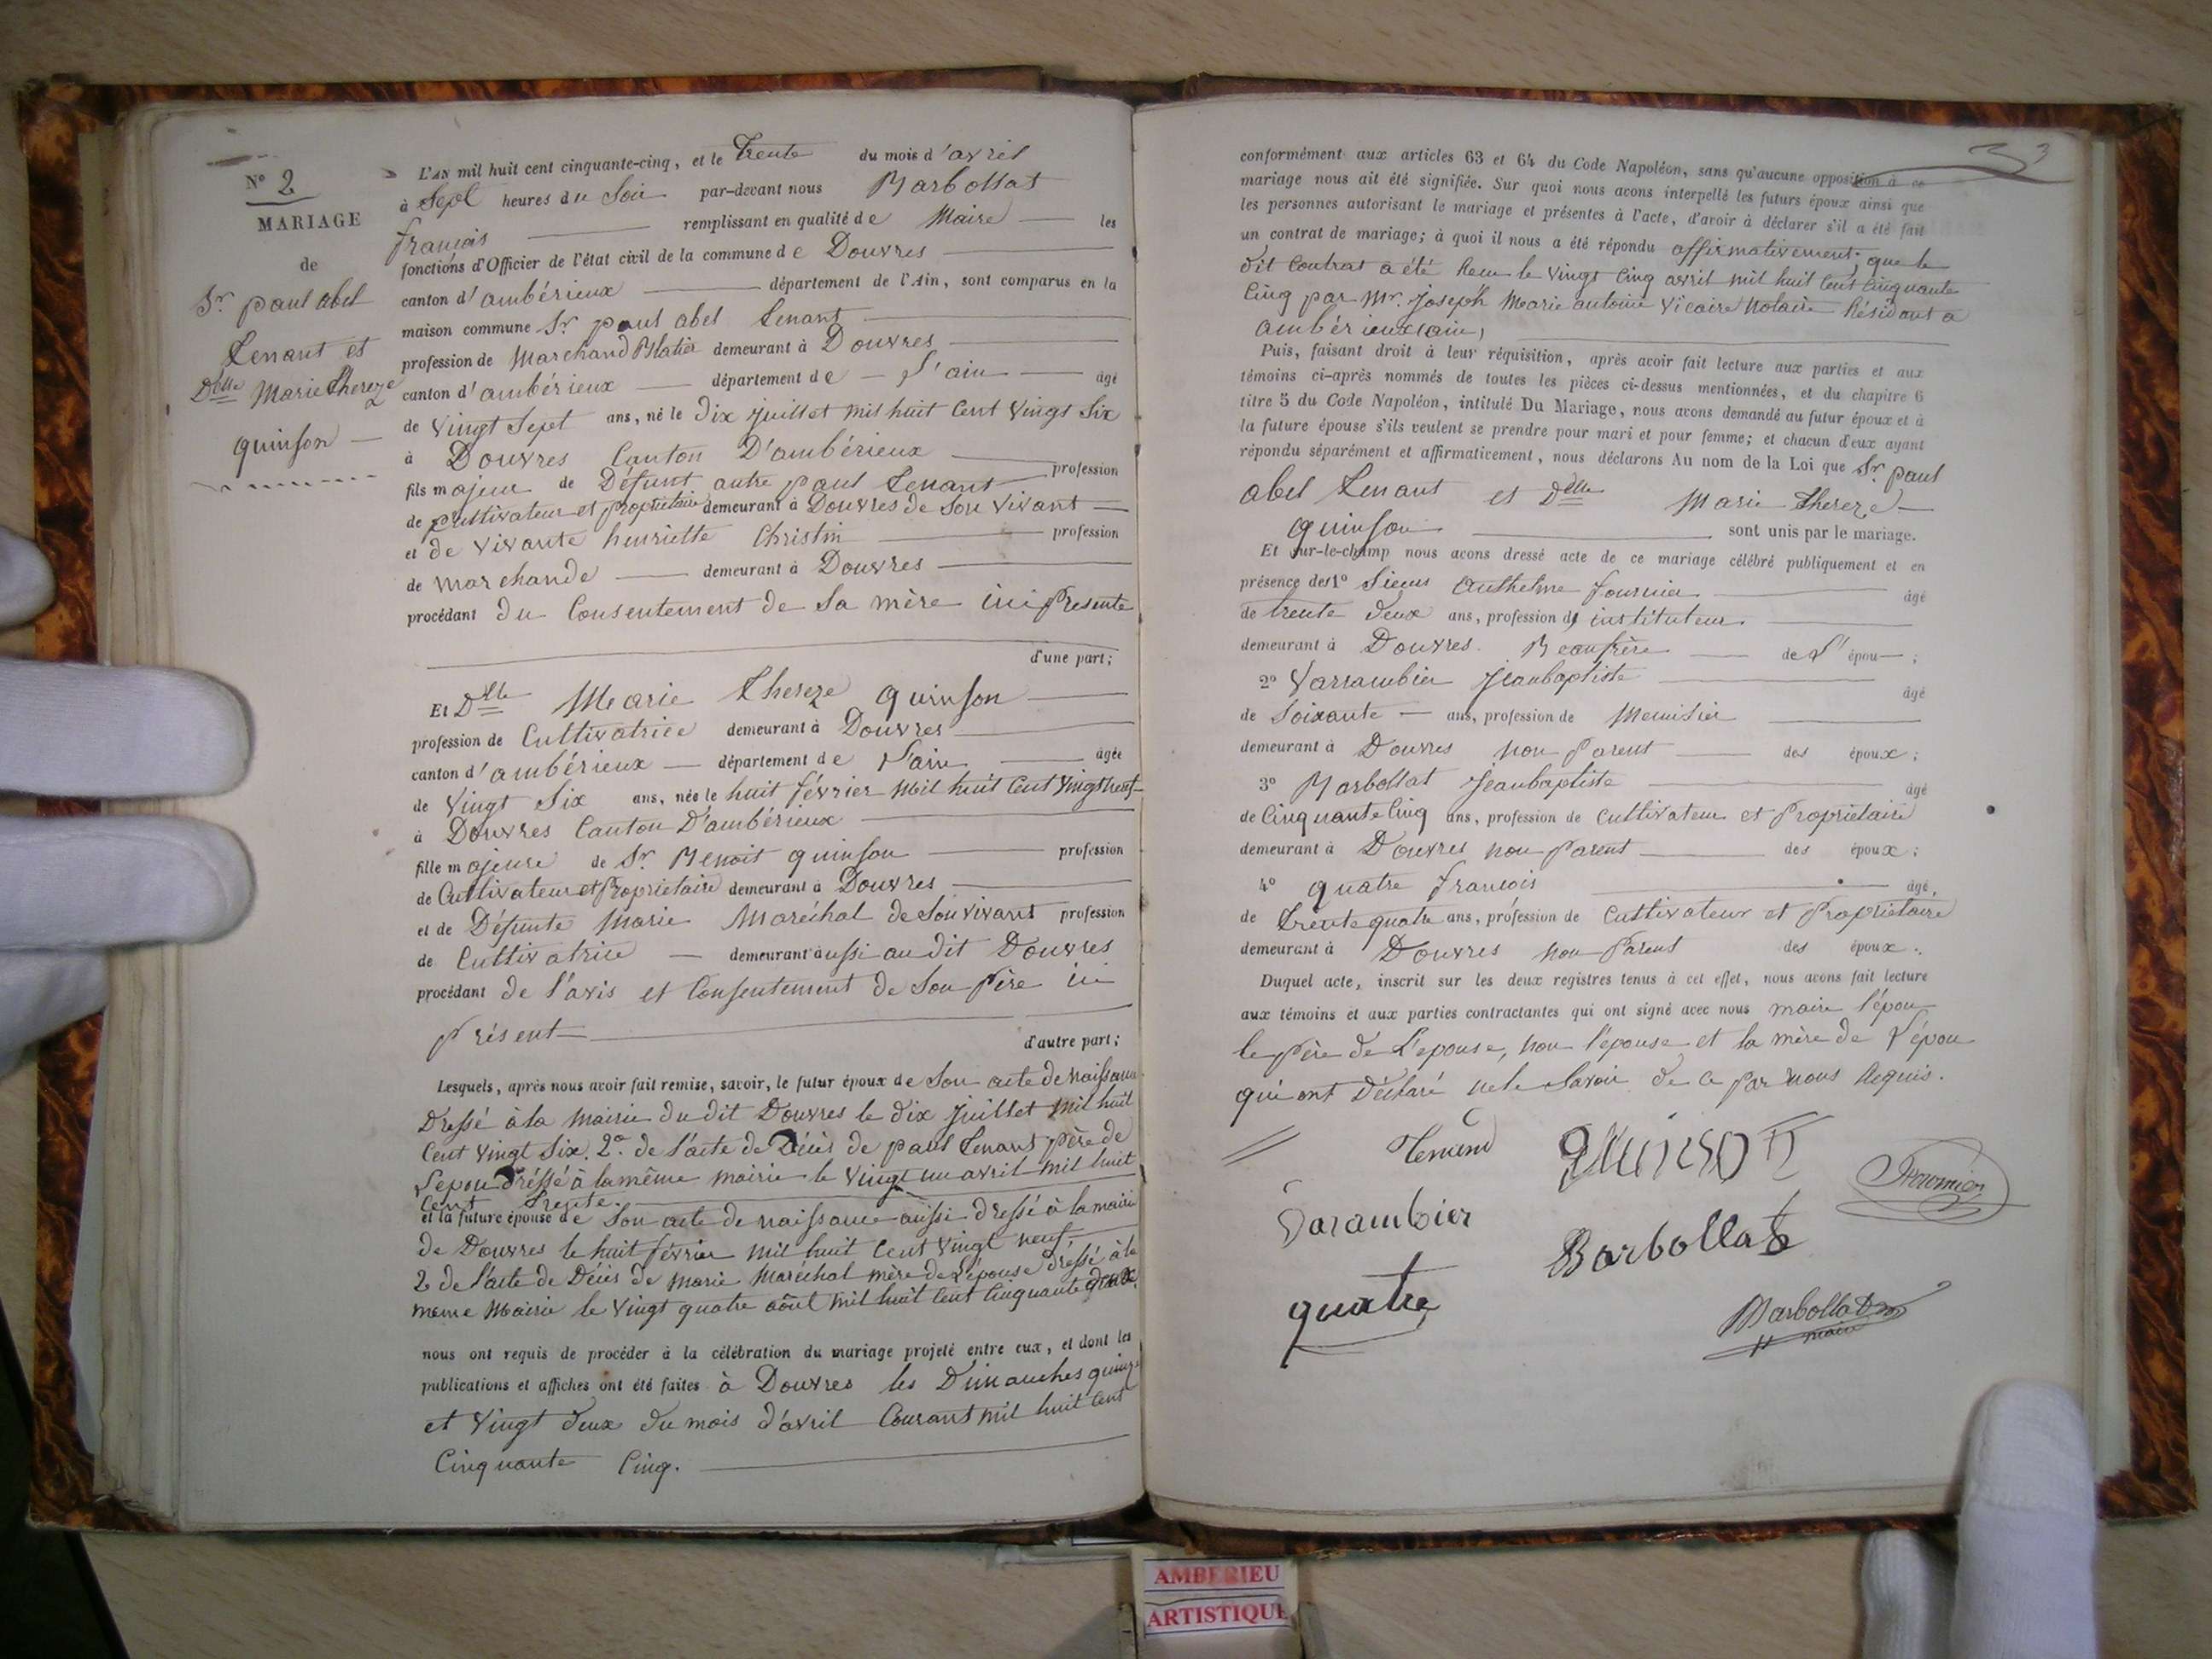 N° 2
MARIAGE
de
Sr. paul abel
Tenant et
Delle Marie Thereze
quinson
L'AN mil huit cent cinquante-cinq, et le Trente du mois d'avril
à Sept heures du Soir par-devant nous Barbollat
françois remplissant en qualité de Maire les
fonctions d'Officier de l'état civil de la commune de Douvres
canton d'ambérieux département de l'Ain, sont comparus en la
maison commune Sr. paul abel Tenant
profession de Marchand Blatier demeurant à Douvres
canton d'ambérieux département de L'ain âgé
de Vingt Sept ans, né le dix juillet mil huit Cent Vingt Six
à Douvres Canton D'ambérieux
fils majeur de Défunt autre paul Tenant profession
de Cultivateur et propriétaire demeurant à Douvres de Son Vivant
et de Vivante henriette Christin profession
de marchande demeurant à Douvres
procédant du Consentement de Sa mère ici Presente
d'une part;
Et Delle Marie Thereze quinson
profession de Cultivatrice demeurant à Douvres
canton d'ambérieux département de L'ain âgée
de Vingt Six ans, née le huit février Mil huit Cent Vingt neuf
à Douvres Canton D'ambérieux
fille majeure de Sr. Benoit quinson profession
de Cultivateur et Propriétaire demeurant à Douvres
et de Défunte Marie Maréchal de Son vivant profession
de Cultivatrice demeurant aussi au dit Douvres
procédant de l'avis et Consentement de Son Père ici
Présent
d'autre part;
Lesquels, après nous avoir fait remise, savoir, le futur époux de Son acte de naissance
Dressé à la Mairie du dit Douvres le dix Juillet mil huit
Cent Vingt Six. 2° de l'acte de Décès de paul Tenant père de
L'epou dréssé à la même mairie le Vingt un avril mil huit
Cent Trente.
et la future épouse de Son acte de naissance aussi dressé à la mairie
de Douvres le huit février mil huit Cent Vingt neuf
2 de l'acte de Décès de Marie Maréchal mère de L'épouse dressé à la
meme Mairie le Vingt quatre août mil huit Cent Cinquante
nous ont requis de procéder à la célébration du mariage projeté entre eux, et dont les
publications et affiches ont été faites à Douvres les Dimanches quinze
et Vingt deux du mois d'avril Courant mil huit Cent
Cinquante Cinq.
conformément aux articles 63 et 64 du Code Napoléon, sans qu'aucune opposition à ce
mariage nous ait été signifiée. Sur quoi nous avons interpellé les futurs époux ainsi que
les personnes autorisant le mariage et présentes à l'acte, d'avoir à déclarer s'il a été fait
un contrat de mariage; à quoi il nous a été répondu affirmativement que le
dit Contrat a été Recu le Vingt Cinq avril mil huit Cent Cinquante
Cinq par Mr. Joseph Marie antoine Vicaire Notaire Résidant a
ambérieux (ain)
Puis, faisant droit à leur réquisition, après avoir fait lecture aux parties et aux
témoins ci-après nommés de toutes les pièces ci-dessus mentionnées, et du chapitre 6
titre 5 du Code Napoléon, intitulé Du Mariage, nous avons demandé au futur époux et à
la future épouse s'ils veulent se prendre pour mari et pour femme; et chacun d'eux ayant
répondu séparément et affirmativement, nous déclarons Au nom de la Loi que Sr. Paul
abel Tenant et Delle Marie Thereze
quinson sont unis par le mariage.
Et sur-le-champ nous avons dressé acte de ce mariage célébré publiquement et en
présence des 1° Sieurs Anthelme fournier âgé
de trente deux ans, profession d' instituteur
demeurant à Douvres. Beaufrère de L'épou ;
2° Varrambier Jeanbaptiste âgé
de Soixante ans, profession de Menuisier
demeurant à Douvres non Parent des époux;
3° Barbollat Jeanbaptiste âgé
de Cinquante Cinq ans, profession de Cultivateur et Propriétaire
demeurant à Douvres non Parent des époux;
4° quatre françois âgé,
de Trente quatre ans, profession de Cultivateur et Propriétaire
demeurant à Douvres non Parent des époux.
Duquel acte, inscrit sur les deux registres tenus à cet effet, nous avons fait lecture
aux témoins et aux parties contractantes qui ont signé avec nous maire l'épou
le Père de L'epouse, non l'épouse et la mère de L'épou
qui ont Déclaré ne le Savoir de ce par nous Requis.
Tenand quinson
Fournier
Varambier
Barbollat
quatre
Barbollat
maire
AMBERIEU
ARTISTIQUE